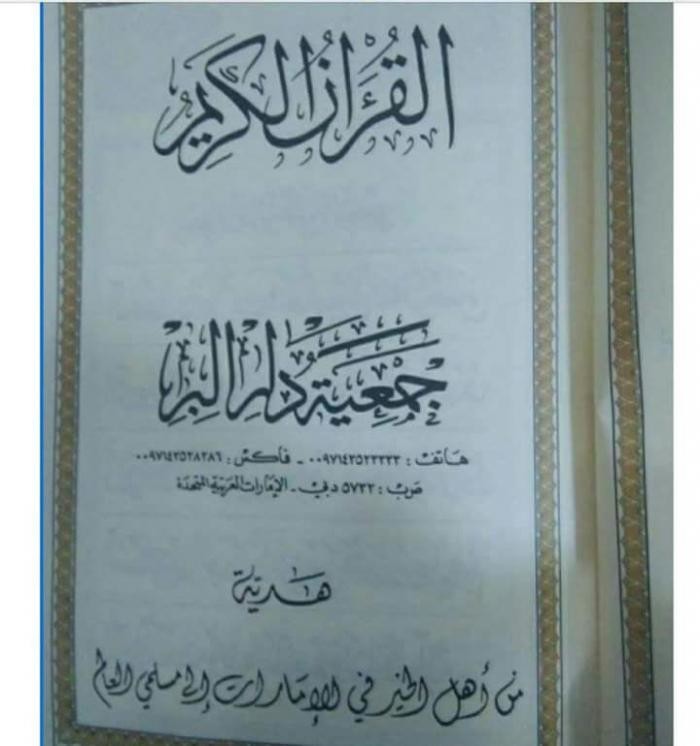 القرءان الكريم
جمعية دار البر
هاتف : ٠٠٩٧١٤٣٥٢٣٣٣٣ - فاكس : ٠٠٩٧١٤٣٥٢٨٢٨٦
ص.ب : ٥٧٣٢ دبي - الإمارات العربية المتحدة
هدية
من أهل الخير في الإمارات إلى مسلمي العالم